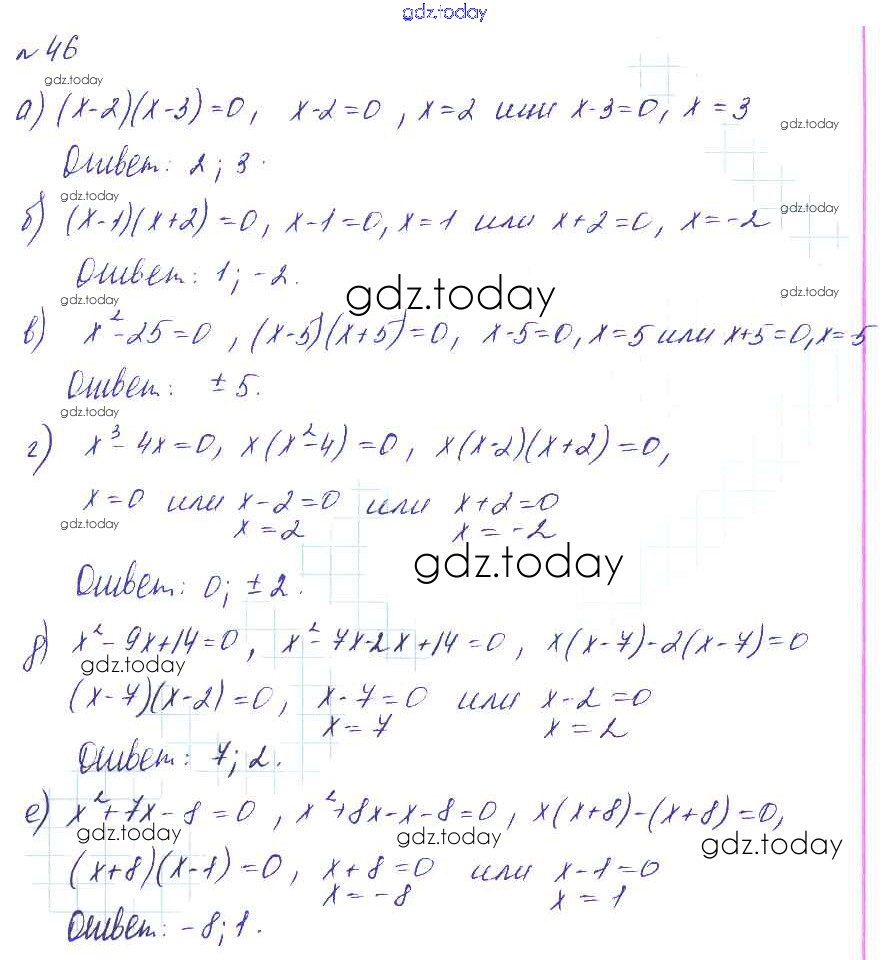 gdz.today
№ 46
gdz.today
а) (x-2)(x-3)=0, x-2=0, x=2 или x-3=0, x=3
gdz.today
Ответ: 2; 3.
gdz.today gdz.today
б) (x-1)(x+2)=0, x-1=0, x=1 или x+2=0, x=-2
Ответ: 1; -2.
gdz.today gdz.today gdz.today
в) x²-25=0, (x-5)(x+5)=0, x-5=0, x=5 или x+5=0, x=-5
Ответ: ±5.
gdz.today
г) x³-4x=0, x(x²-4)=0, x(x-2)(x+2)=0,
x=0 или x-2=0 или x+2=0
gdz.today x=2 x=-2
gdz.today
Ответ: 0; ±2.
д) x²-9x+14=0, x²-7x-2x+14=0, x(x-7)-2(x-7)=0
gdz.today
(x-7)(x-2)=0, x-7=0 или x-2=0
x=7 x=2
Ответ: 7; 2.
е) x²+7x-8=0, x²+8x-x-8=0, x(x+8)-(x+8)=0,
gdz.today gdz.today gdz.today
(x+8)(x-1)=0, x+8=0 или x-1=0
x=-8 x=1
Ответ: -8; 1.